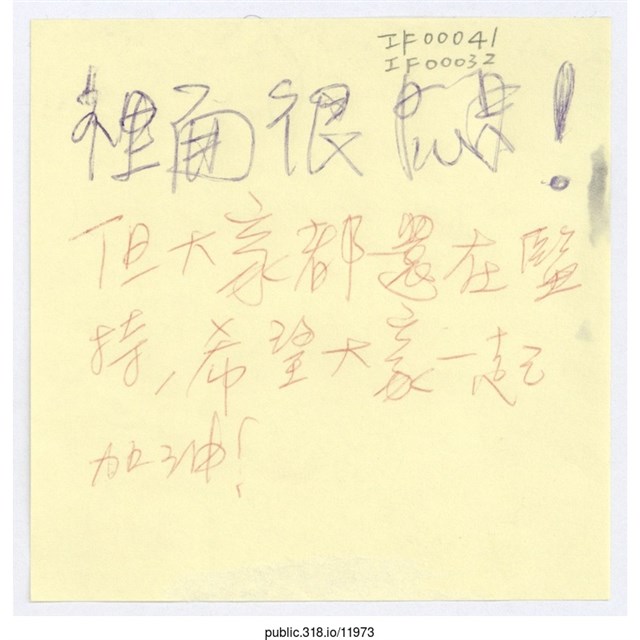 IF00041
IF00032
裡面很!
但大家都還在監
持,希望大家一起
加油!
public.318.io/11973